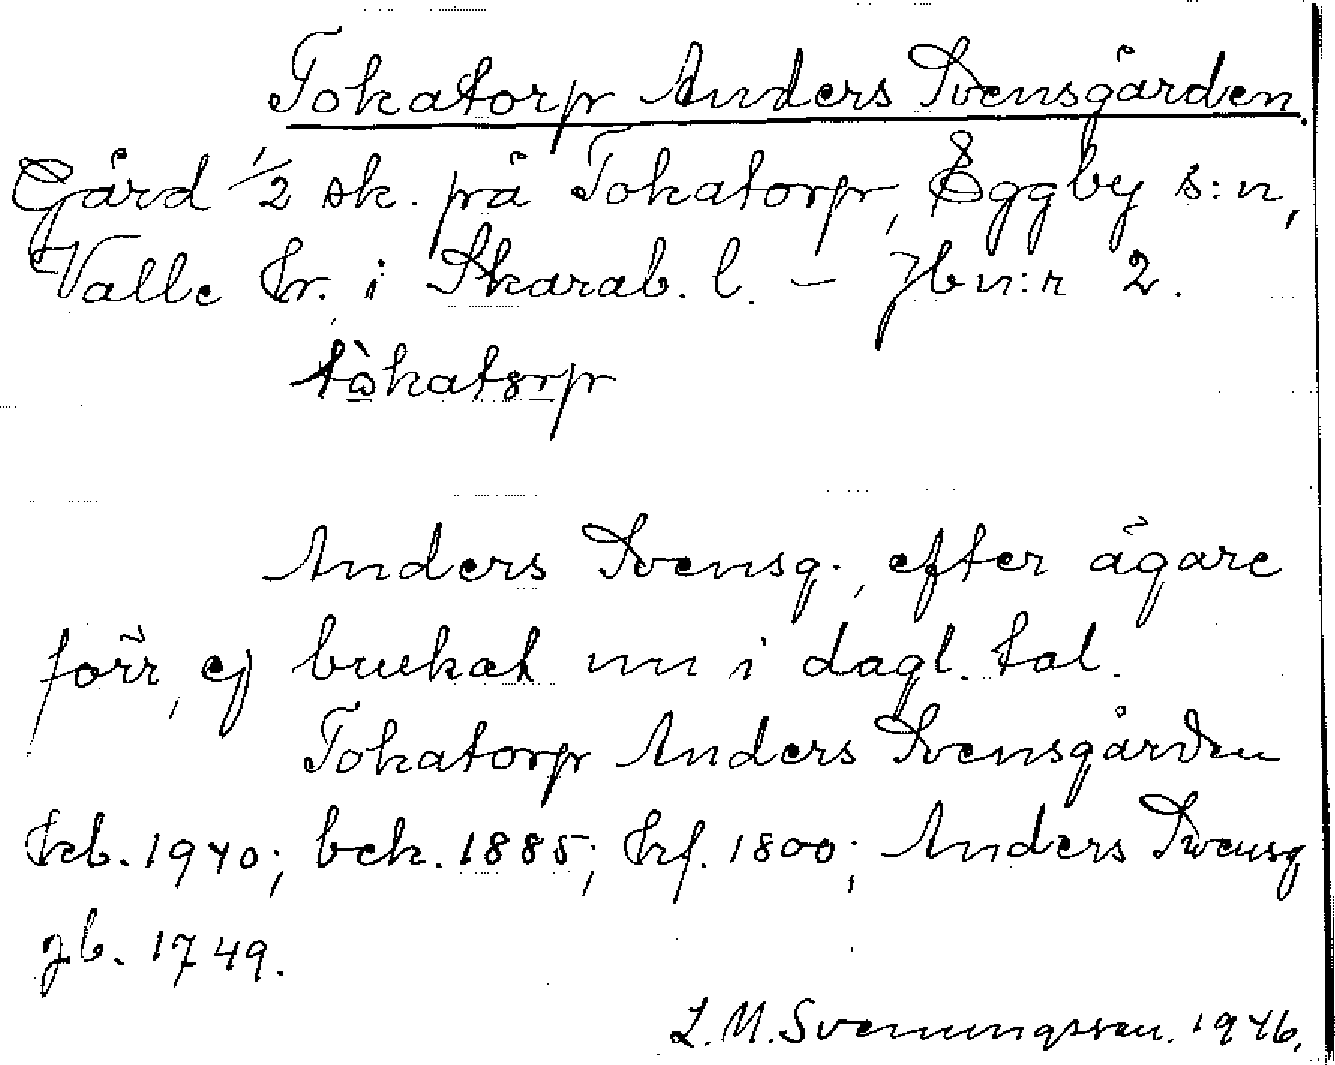 Tokatorp Anders Svensgården.
Gård 1/2 sk. på Tokatorp, Eggby s:n,
Valle hr. i Skarab. l. – Jbn:r 2.
tòkatorp
Anders Svensg., efter ägare
förr, ej brukat nu i dagl. tal.
Tokatorp Anders Svensgården
kb. 1940; bek. 1885; hf. 1800; Anders Svensg
jb. 1749.
L. M. Svenungsson. 1946.